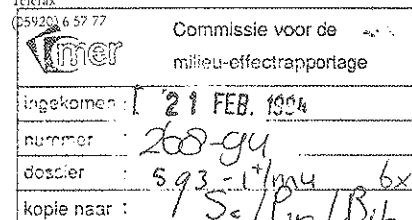 Telefax
(05920) 6 57 77
mer
Commissie voor de
milieu-effectrapportage
ingekomen : 21 FEB. 1994
nummer : 268-94
dossier : 593-1+/mu 6x
kopie naar : Sc/Pm/Bib